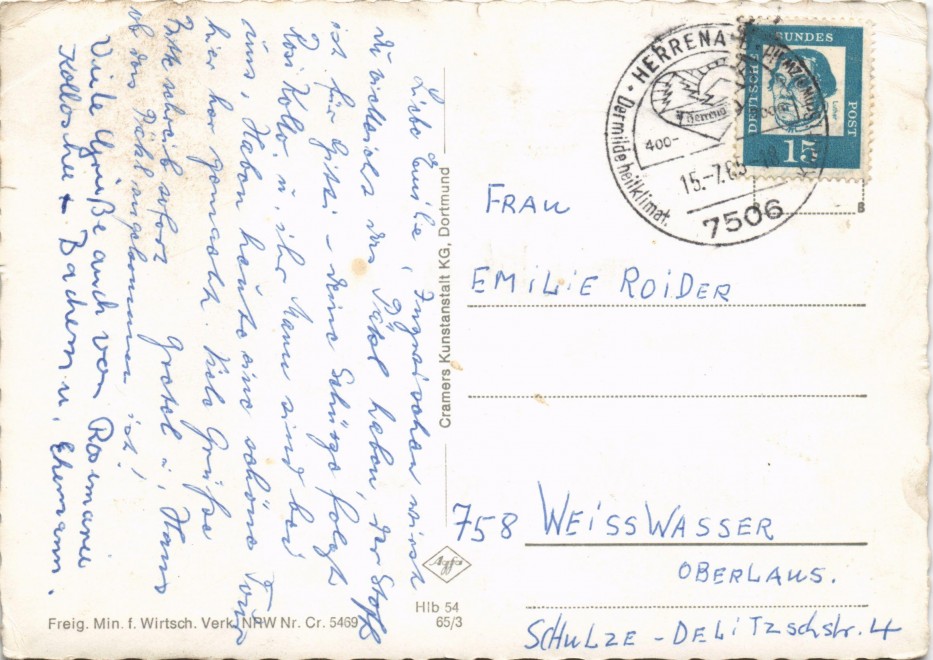 Liebe Emilie, Inzwischen wirst
Du vielleicht das Päckl haben, der Stoff
ist für Gitti - eine Schürze folgt
Rosi Kollo. u. ihr Mann sind bei
uns, Haben heute eine schöne Tour
hier her gemacht. Viele Grüße
Bitte schreib sofort Gretel u. Hans
ob das Päckl angekommen ist!
Viele Grüße auch von Rosemarie
Kolloschee + Bachem u. Ehemann.
Cramers Kunstanstalt KG, Dortmund
Agfa
Hlb 54
65/3
Freig. Min. f. Wirtsch. Verk. NRW Nr. Cr. 5469
HERRENA
Der milde heilklimat.
Herrena
400-
15.-7.65-18
7506
DEUTSCHE
BUNDES
POST
15
B
FRAU
EMILIE ROIDER
758 WEISSWASSER
OBERLAUS.
SCHULZE-DELITZSCHSTR. 4